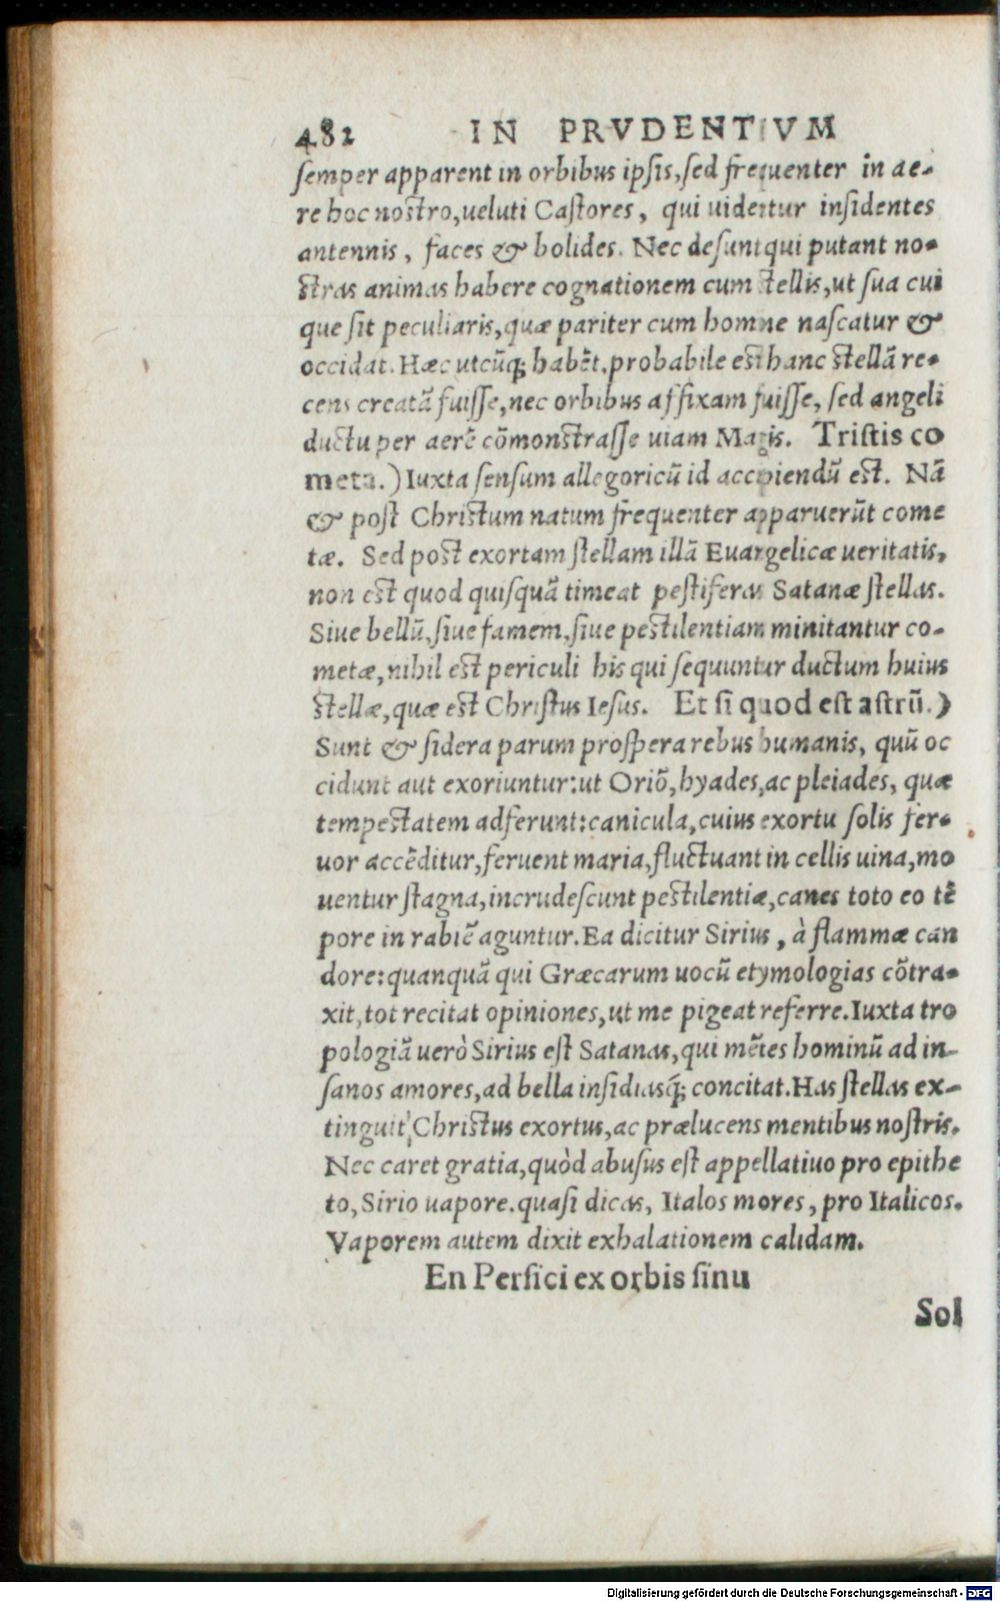 482 IN PRVDENTIVM
semper apparent in orbibus ipsis, sed frequenter in ae-
re hoc nostro, ueluti Castores, qui uidentur insidentes
antennis, faces & bolides. Nec desunt qui putant no-
stras animas habere cognationem cum stellis, ut sua cui
que sit peculiaris, quæ pariter cum homine nascatur &
occidat. Hæc utcũq; habẽt, probabile est hanc stellã re-
cens creatã fuisse, nec orbibus affixam fuisse, sed angeli
ductu per aerẽ cõmonstrasse uiam Magis. Tristis co
meta.) Iuxta sensum allegoricũ id accipiendũ est. Nã
& post Christum natum frequenter apparuerũt come
tæ. Sed post exortam stellam illã Euangelicæ ueritatis,
non est quod quisquã timeat pestiferas Satanæ stellas.
Siue bellũ, siue famem, siue pestilentiam minitantur co-
metæ, nihil est periculi his qui sequuntur ductum huius
stellæ, quæ est Christus Iesus. Et si quod est astrũ.)
Sunt & sidera parum prospera rebus humanis, quũ oc
cidunt aut exoriuntur: ut Oriõ, hyades, ac pleiades, quæ
tempestatem adferunt: canicula, cuius exortu solis fer-
uor accẽditur, feruent maria, fluctuant in cellis uina, mo
uentur stagna, incrudescunt pestilentiæ, canes toto eo tẽ
pore in rabiẽ aguntur. Ea dicitur Sirius, à flammæ can
dore: quanquã qui Græcarum uocũ etymologias cõtra-
xit, tot recitat opiniones, ut me pigeat referre. Iuxta tro
pologiã uerò Sirius est Satanas, qui mẽtes hominũ ad in-
sanos amores, ad bella insidiasq́; concitat. Has stellas ex-
tinguit Christus exortus, ac prælucens mentibus nostris.
Nec caret gratia, quòd abusus est appellatiuo pro epithe
to, Sirio uapore. quasi dicas, Italos mores, pro Italicos.
Vaporem autem dixit exhalationem calidam.
En Persici ex orbis sinu
Sol
Digitalisierung gefördert durch die Deutsche Forschungsgemeinschaft - DFG